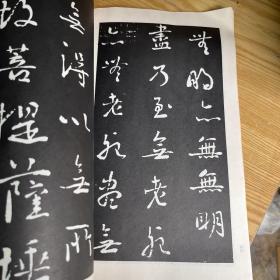 無明亦無無明
盡乃至無老死
亦無老死盡無
無得以無所
故菩提薩埵